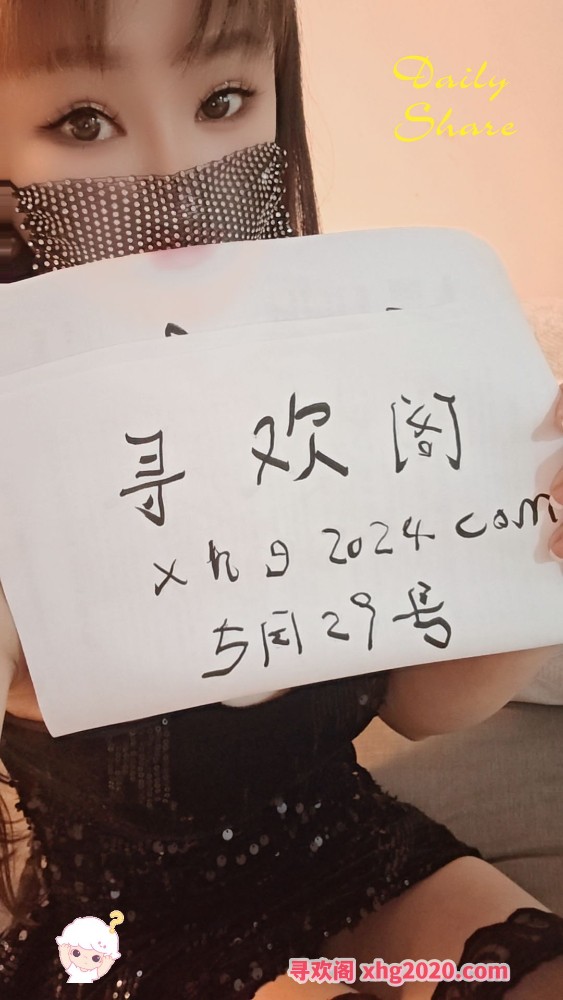 Daily
Share
寻欢阁
xhg2024com
5月29号
?
寻欢阁 xhg2020.com